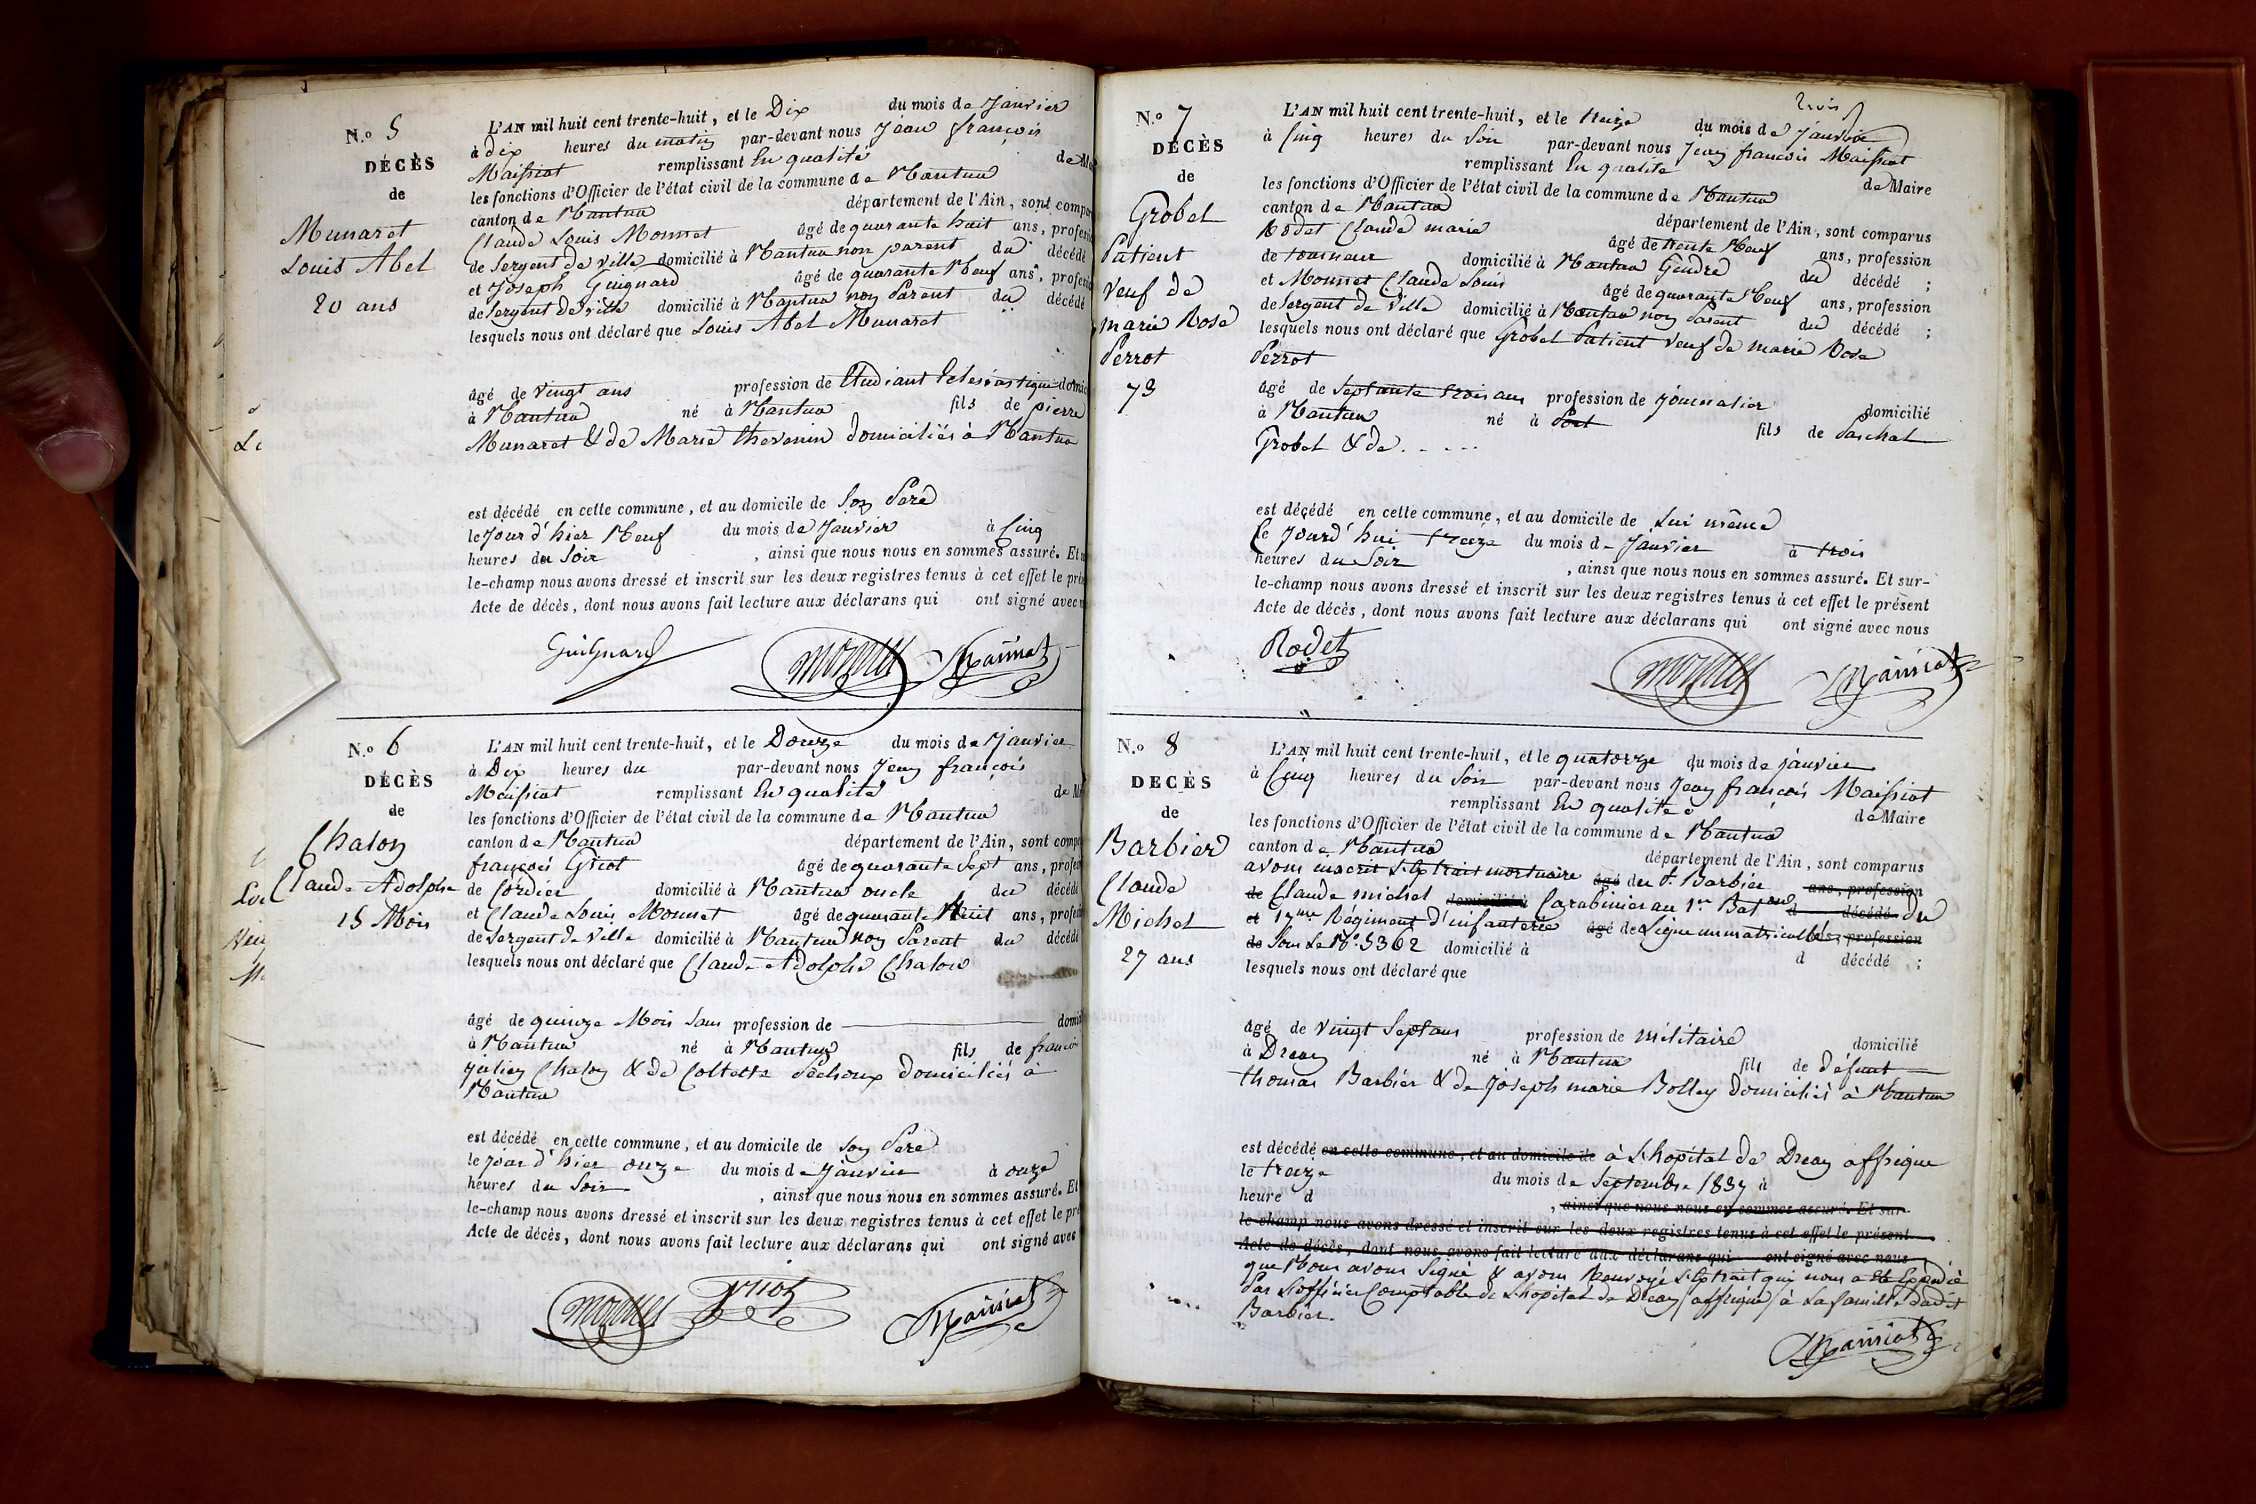 N.o 5
DÉCÈS
de
Munaret
Louis Abel
20 ans
L'AN mil huit cent trente-huit, et le Dix du mois de Janvier
à dix heures du matin par-devant nous Jean françois
Maissiat remplissant En qualité de M
les fonctions d'Officier de l'état civil de la commune de Nantua
canton de Nantua département de l'Ain, sont compa
Claude Louis Monnet âgé de quarante huit ans, profess
de Sergent de ville domicilié à Nantua non parent du décédé
et Joseph Guignard âgé de quarante Neuf ans, profess
de Sergent de ville domicilié à Nantua non Parent du décédé
lesquels nous ont déclaré que Louis Abel Munaret
âgé de vingt ans profession de Etudiant Eclesiastique domic
à Nantua né à Nantua fils de pierre
Munaret & de Marie thevenin domiciliés à Nantua
est décédé en cette commune, et au domicile de Son Pere
le Jour d'hier Neuf du mois de Janvier à Cinq
heures du Soir, ainsi que nous nous en sommes assuré. Et
le-champ nous avons dressé et inscrit sur les deux registres tenus à cet effet le pré
Acte de décès, dont nous avons fait lecture aux déclarans qui ont signé avec
Guignard Monnet Maissiat
N.o 6
DÉCÈS
de
Chalon
Claude Adolphe
15 Mois
L'AN mil huit cent trente-huit, et le Douze du mois de Janvier
à Dix heures du par-devant nous Jean françois
Maissiat remplissant En qualité de M
les fonctions d'Officier de l'état civil de la commune de Nantua
canton de Nantua département de l'Ain, sont comp
françois Griot âgé de quarante Sept ans, profess
de Cordier domicilié à Nantua oncle du décédé
et Claude Louis Monnet âgé de quarante Huit ans, profess
de Sergent de Ville domicilié à Nantua non Parent du décédé
lesquels nous ont déclaré que Claude Adolphe Chalon
âgé de quinze Mois Sans profession de domic
à Nantua né à Nantua fils de françois
Julien Chalon & de Collette Pechoux domiciliés à
Nantua
est décédé en cette commune, et au domicile de Son Pere
le Jour d'hier onze du mois de Janvier à onze
heures du Soir, ainsi que nous nous en sommes assuré. Et
le-champ nous avons dressé et inscrit sur les deux registres tenus à cet effet le pré
Acte de décès, dont nous avons fait lecture aux déclarans qui ont signé avec
Monnet Griot Maissiat
trois
N.o 7
DÉCÈS
de
Grobel
Patient
Veuf de
marie Rose
Perrot
73
L'AN mil huit cent trente-huit, et le treize du mois de Janvier
à Cinq heures du Soir par-devant nous Jean françois Maissiat
remplissant En qualité de Maire
les fonctions d'Officier de l'état civil de la commune de Nantua
canton de Nantua département de l'Ain, sont comparus
Rodet Claude marie âgé de trente Neuf ans, profession
de tourneur domicilié à Nantua Gendre du décédé ;
et Monnet Claude Louis âgé de quarante Neuf ans, profession
de Sergent de Ville domicilié à Nantua non Parent du décédé ;
lesquels nous ont déclaré que Grobel Patient Veuf de marie Rose
Perrot
âgé de Septante trois ans profession de Journalier domicilié
à Nantua né à Port fils de Paschal
Grobel & de . - - -
est décédé en cette commune, et au domicile de Lui même
le Jourd'hui treize du mois de Janvier à trois
heures du Soir, ainsi que nous nous en sommes assuré. Et sur-
le-champ nous avons dressé et inscrit sur les deux registres tenus à cet effet le présent
Acte de décès, dont nous avons fait lecture aux déclarans qui ont signé avec nous
Rodet Monnet Maissiat
N.o 8
DECÈS
de
Barbier
Claude
Michel
27 ans
L'AN mil huit cent trente-huit, et le quatorze du mois de janvier
à Cinq heures du Soir par-devant nous Jean françois Maissiat
remplissant En qualité de Maire
les fonctions d'Officier de l'état civil de la commune de Nantua
canton de Nantua département de l'Ain, sont comparus
avons inscrit L'Extrait mortuaire âgé du S. Barbier ans, profession
de Claude michel domicilié à Carabinier au 1er Baton d décédé du
et 17me Régiment d'infanterie âgé de Ligne immatriculé ans, profession
de Sous Le No. 5362 domicilié à d décédé ;
lesquels nous ont déclaré que
âgé de vingt Sept ans profession de militaire domicilié
à Drean né à Nantua fils de défunt
thomas Barbier & de Joseph marie Bolley domiciliés à Nantua
est décédé en cette commune, et au domicile de à L'hopital de Drean affrique
le treize du mois de Septembre 1837 à
heure d, ainsi que nous nous en sommes assuré. Et sur-
le-champ nous avons dressé et inscrit sur les deux registres tenus à cet effet le présent
Acte de décès, dont nous avons fait lecture aux déclarans qui ont signé avec nous
que Nous avons Signé & avons Renvoyé L'Extrait qui nous a été Expedié
Par L'officier Comptable de L'hopital de Drean (affrique) à La famille dudit
Barbier.
Maissiat